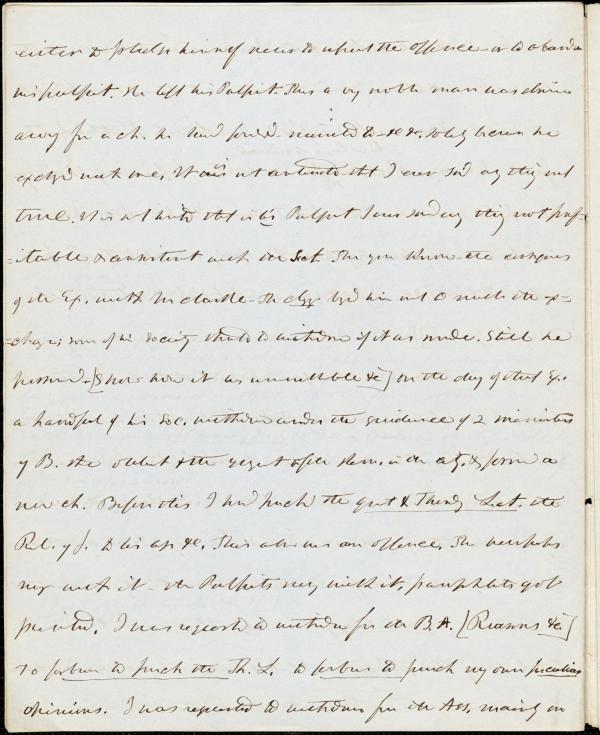 either to pledge himself never to repeat the offence - or to abandon
his pulpit. He left his Pulpit. Thus a very noble man was driven
away for a ch. he had formed, ministered to - &c &c. solely because he
exchgd with me. It was not contended tht I ever sd any thing not
true. It is not hinted tht in his Pulpit I ever said any thing not prof-
=itable & consistent with the Sect. Then you know the consequences
of the Ex. with Mr Clarke - The clergy begd him not to make the ex-
=change; some of his Society thretd to withdraw if it was made. Still he
persisted. [Show how it was unavoidable &c] on the day of that Ex.
a handful of his Soc. withdrew under the guidance of 2 ministers
of B. the oldest & the yngest of the Denm. in the city, & formed a
new ch. Before this I had preach the great & Thursdy Lect. the
Rel. of J. & his age &c. This also was an offence. The newspapers
rang with it - the Pulpits rang with it, pamphlets got
printed. I was requestd to withdraw for the B.A. [Reasons &c]
To forbear to preach the Th. L. to forbear to preach my own peculiar
opinions. I was requested to withdraw for the Ass. mainly on